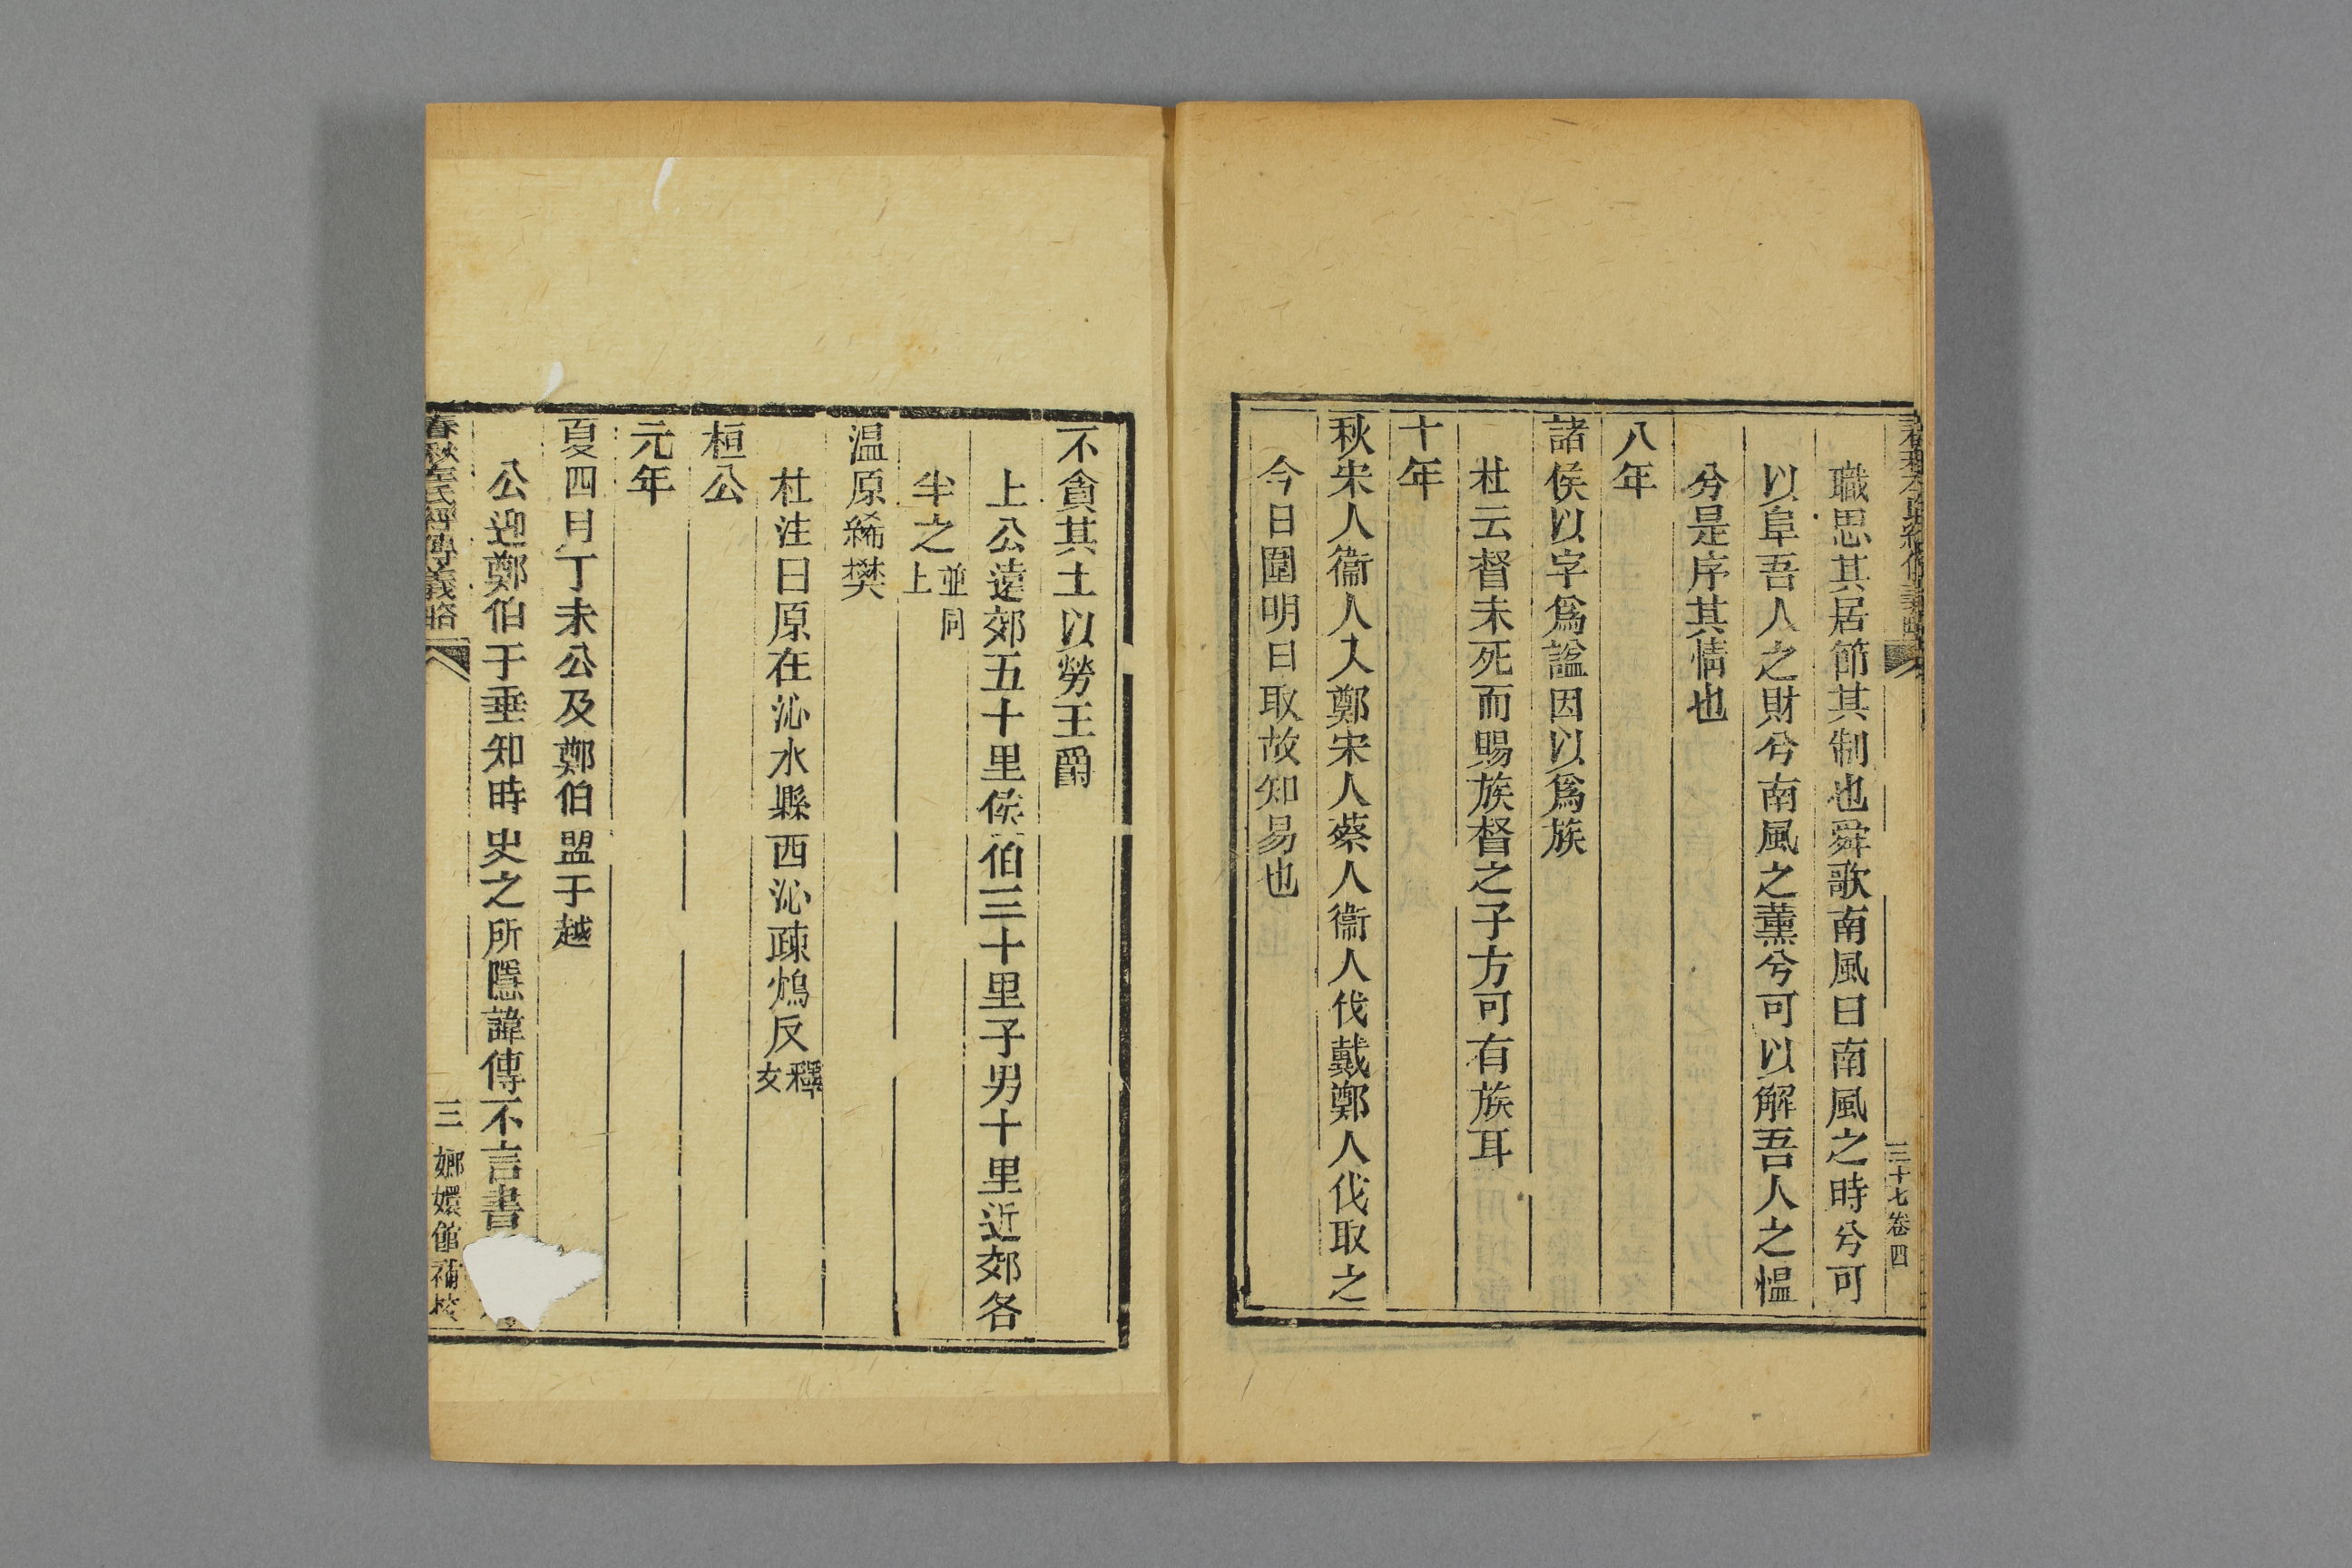 三十七卷四
職思其居節其制也舜歌南風曰南風之時兮可
以阜吾人之財兮南風之薰兮可以解吾人之慍
兮是序其情也
八年
諸侯以字爲諡因以爲族
杜云督未死而賜族督之子方可有族耳
十年
秋宋人衞人入鄭宋人蔡人衞人伐戴鄭人伐取之
今日圍明日取故知易也
不貪其土以勞王爵
上公遠郊五十里侯伯三十里子男十里近郊各
半之並同上
温原絺樊
杜注曰原在沁水縣西沁疎鴆反釋文
桓公
元年
夏四月丁未公及鄭伯盟于越
公迎鄭伯于垂知時史之所隱諱傳不言書
春秋左氏經傳義略
三
嫏嬛館補校